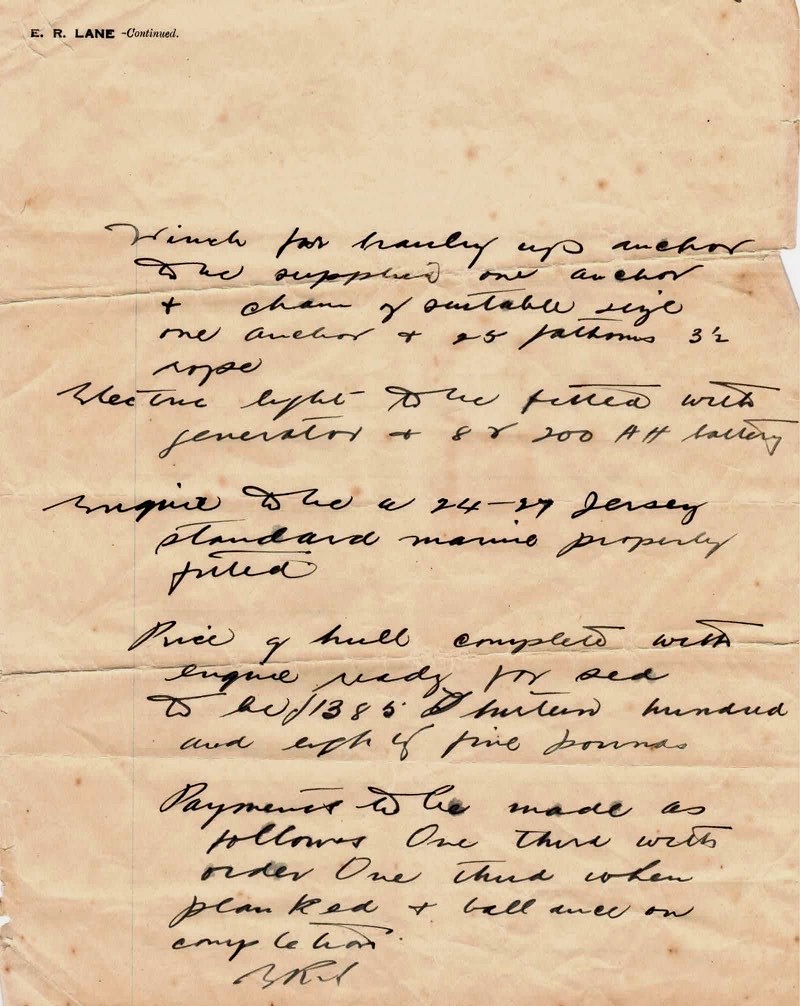 E. R. LANE -Continued.
Winch for hauling up anchor
to be supplied one anchor
& chain of suitable size
one anchor & 25 fathoms 3½
rope
Electric light to be fitted with
generator & 8 V 200 AH battery
Engine to be a 24-27 Jersey
standard marine properly
fitted
Price of hull complete with
engine ready for sea
to be £1385 Thirteen hundred
and eighty five pounds
Payments to be made as
follows One third with
order One third when
planked & ballance on
completion.